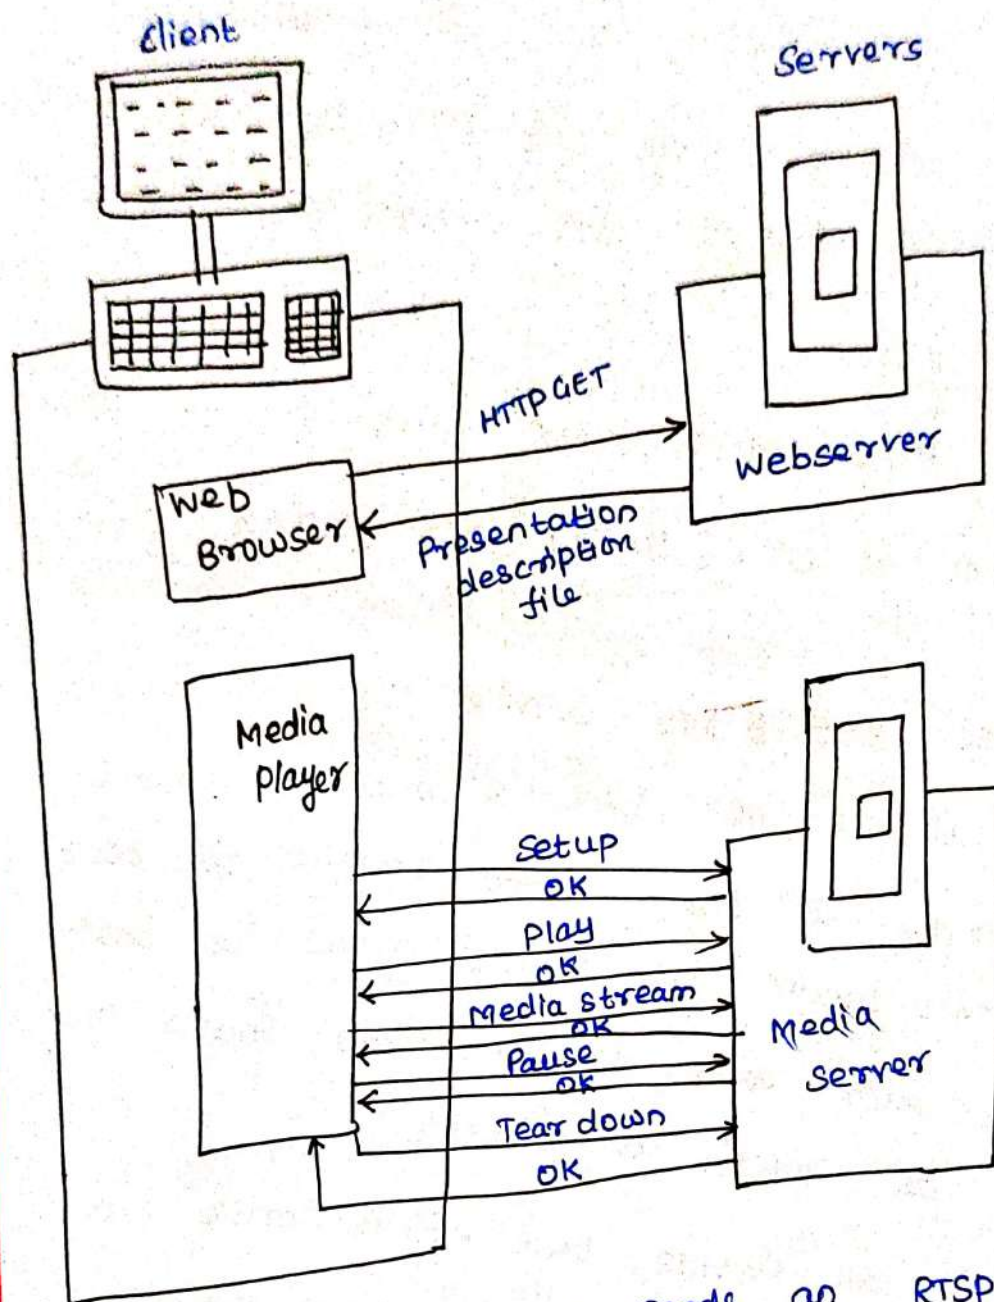 Client
Servers
HTTP GET
Webserver
Web
Browser
Presentation
description
file
Media
Player
Setup
OK
Play
OK
Media stream
OK
Pause
OK
Tear down
OK
Media
server
RTSP